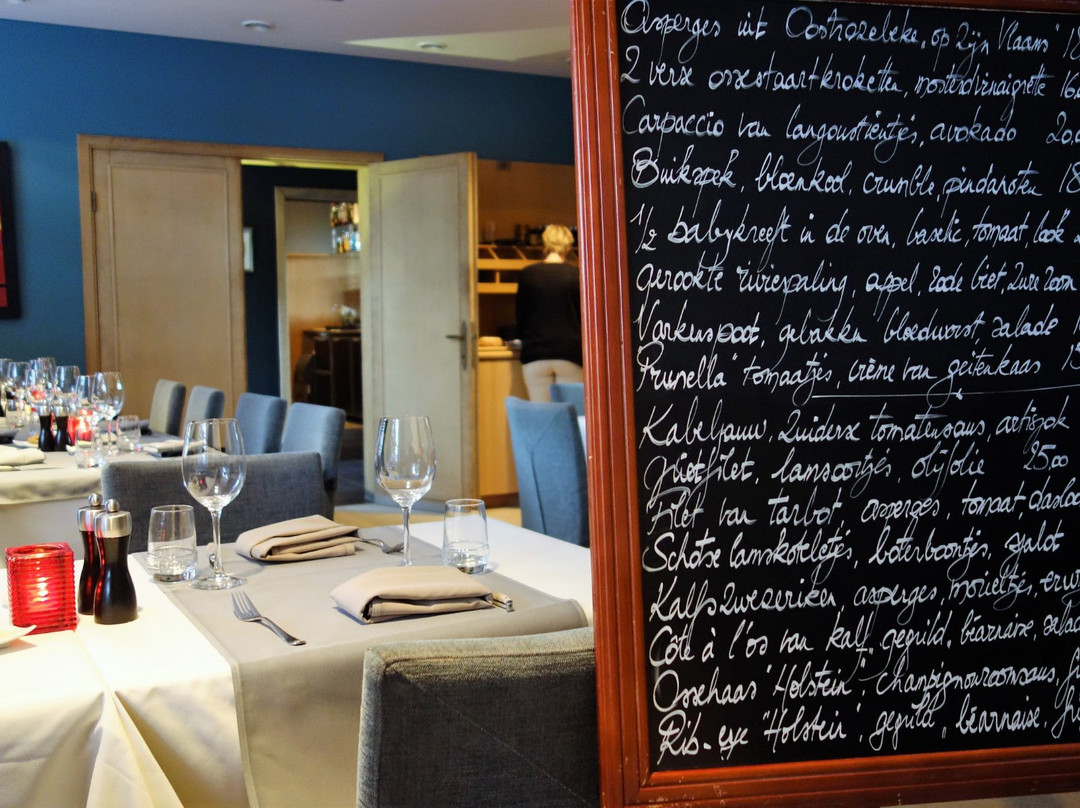 Asperges uit Oostrozebeke, op zijn Vlaams" 18
2 verse ossestaartkroketten, mosterdvinaigrette 16,
Carpaccio van langoustientjes, avokado 20,0
Buikspek, bloemkool, crumble, pindanoten 18
1/2 babykreeft in de oven, basilic, tomaat, look 2
gerookte rivierpaling, appel, rode biet, zure room
Varkenspoot, gebakken bloedworst, salade 1
"Prunella" tomaatjes, crème van geitenkaas 15
Kabeljauw, Zuiderse tomatensaus, artisjok
filet, lamsoortjes, olijfolie 25,00
Filet van Tarbot, asperges, tomaat, daslook
Schotse lamskoteletjes, boterboontjes, sjalot
Kalfszwezeriken, asperges, morieltjes, erw
Côte à l'os van kalf, gegrild, béarnaise, sala
Ossehaas "Holstein", champignonroomsaus, fr
Rib-eye "Holstein", gegrild, béarnaise, fr